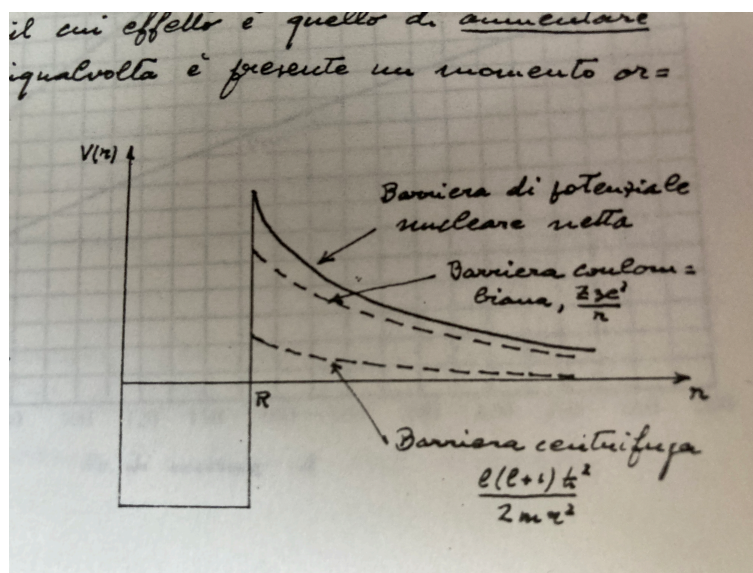 il cui effetto è quello di aumentare
iqualvolta è presente un momento or=
V(r)
Barriera di potenziale
nucleare netta
Barriera coulom=
biana, Zze²/r
R
r
Barriera centrifuga
l(l+1)ħ²/2mr²